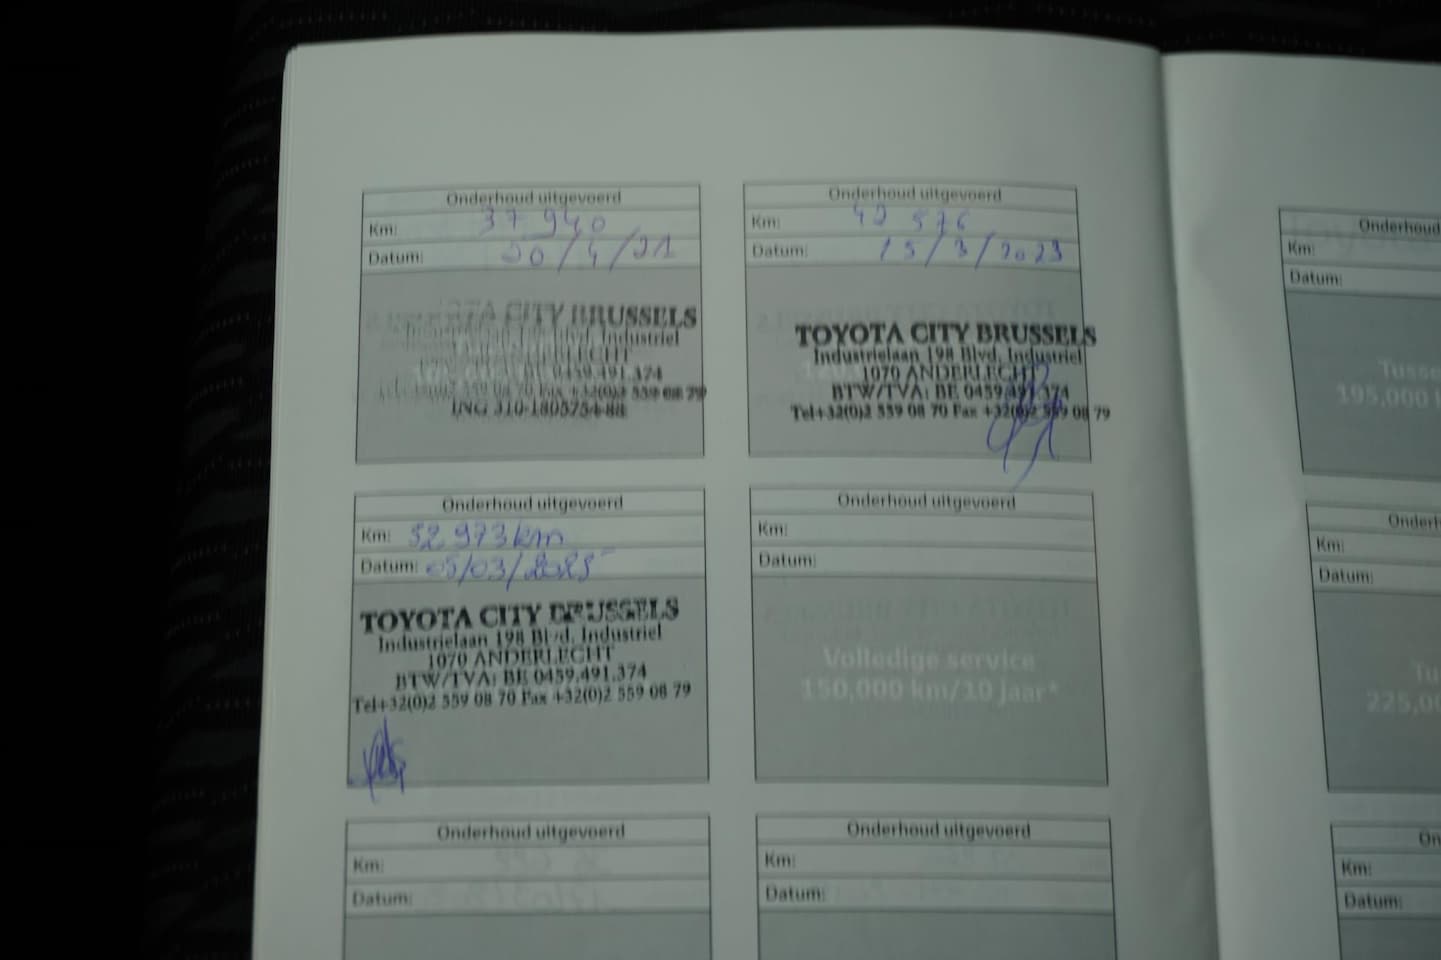 Onderhoud uitgevoerd
Km: 37 940
Datum: 20/4/21
TA CITY BRUSSELS
Blvd. Industriel
ANDERLECHT
0459.491.374
559 08 70 Fax +32(0)2 559 08 79
ING 310-1805754-88
Onderhoud uitgevoerd
Km: 49 576
Datum: 15/3/2023
TOYOTA CITY BRUSSELS
Industrielaan 198 Blvd. Industriel
1070 ANDERLECHT
BTW/TVA: BE 0459.491.374
Tel+32(0)2 559 08 70 Fax +32(0)2 559 08 79
Onderhoud uitgevoerd
Km: 52 973 km
Datum: 05/03/2025
TOYOTA CITY BRUSSELS
Industrielaan 198 Blvd. Industriel
1070 ANDERLECHT
BTW/TVA: BE 0459.491.374
Tel+32(0)2 559 08 70 Fax +32(0)2 559 08 79
Onderhoud uitgevoerd
Km:
Datum:
Volledige service
150,000 km/10 jaar*
Onderhoud uitgevoerd
Km:
Datum:
Onderhoud uitgevoerd
Km:
Datum:
Onderhoud
Km:
Datum:
Tusse
195,000
Onderh
Km:
Datum:
Tu
225,0
On
Km:
Datum: